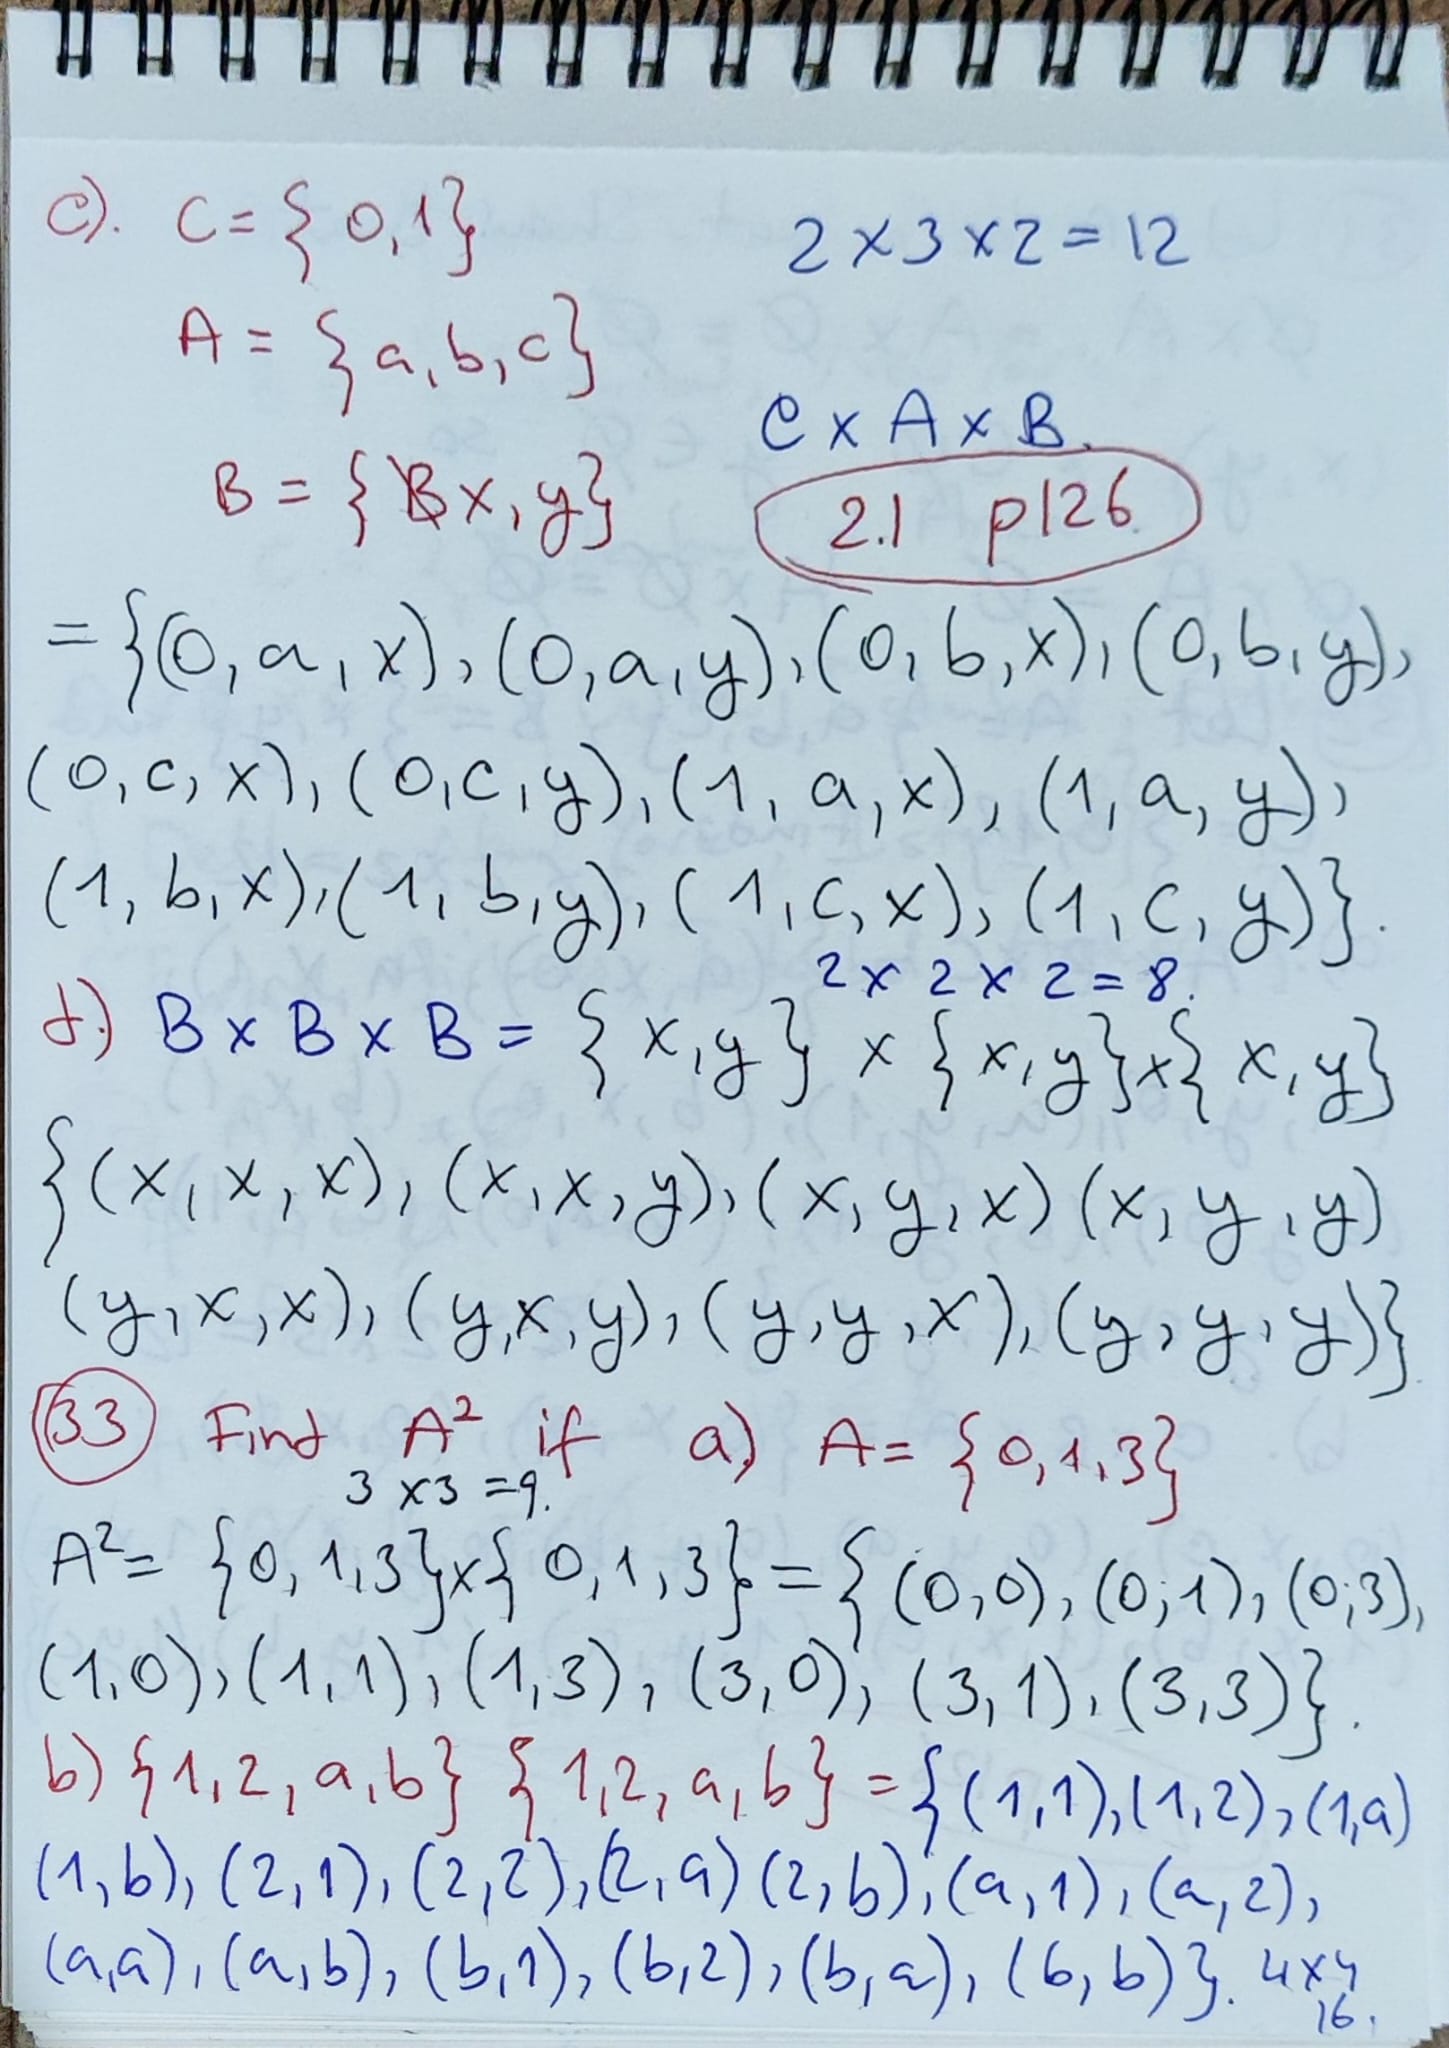 c). C = {0,1}
2 x 3 x 2 = 12
A = {a, b, c}
C x A x B.
B = {x, y}
2.1 p126.
= {(0, a, x), (0, a, y), (0, b, x), (0, b, y),
(0, c, x), (0, c, y), (1, a, x), (1, a, y),
(1, b, x), (1, b, y), (1, c, x), (1, c, y)}.
2 x 2 x 2 = 8.
d.) B x B x B = {x, y} x {x, y} x {x, y}
{(x, x, x), (x, x, y), (x, y, x) (x, y, y)
(y, x, x), (y, x, y), (y, y, x), (y, y, y)}
33 Find A² if a.) A = {0, 1, 3}
3 x 3 = 9.
A² = {0, 1, 3} x {0, 1, 3} = {(0, 0), (0, 1), (0, 3),
(1, 0), (1, 1), (1, 3), (3, 0), (3, 1), (3, 3)}.
b) {1, 2, a, b} {1, 2, a, b} = {(1, 1), (1, 2), (1, a)
(1, b), (2, 1), (2, 2), (2, a) (2, b), (a, 1), (a, 2),
(a, a), (a, b), (b, 1), (b, 2), (b, a), (b, b)}. 4 x 4
16.